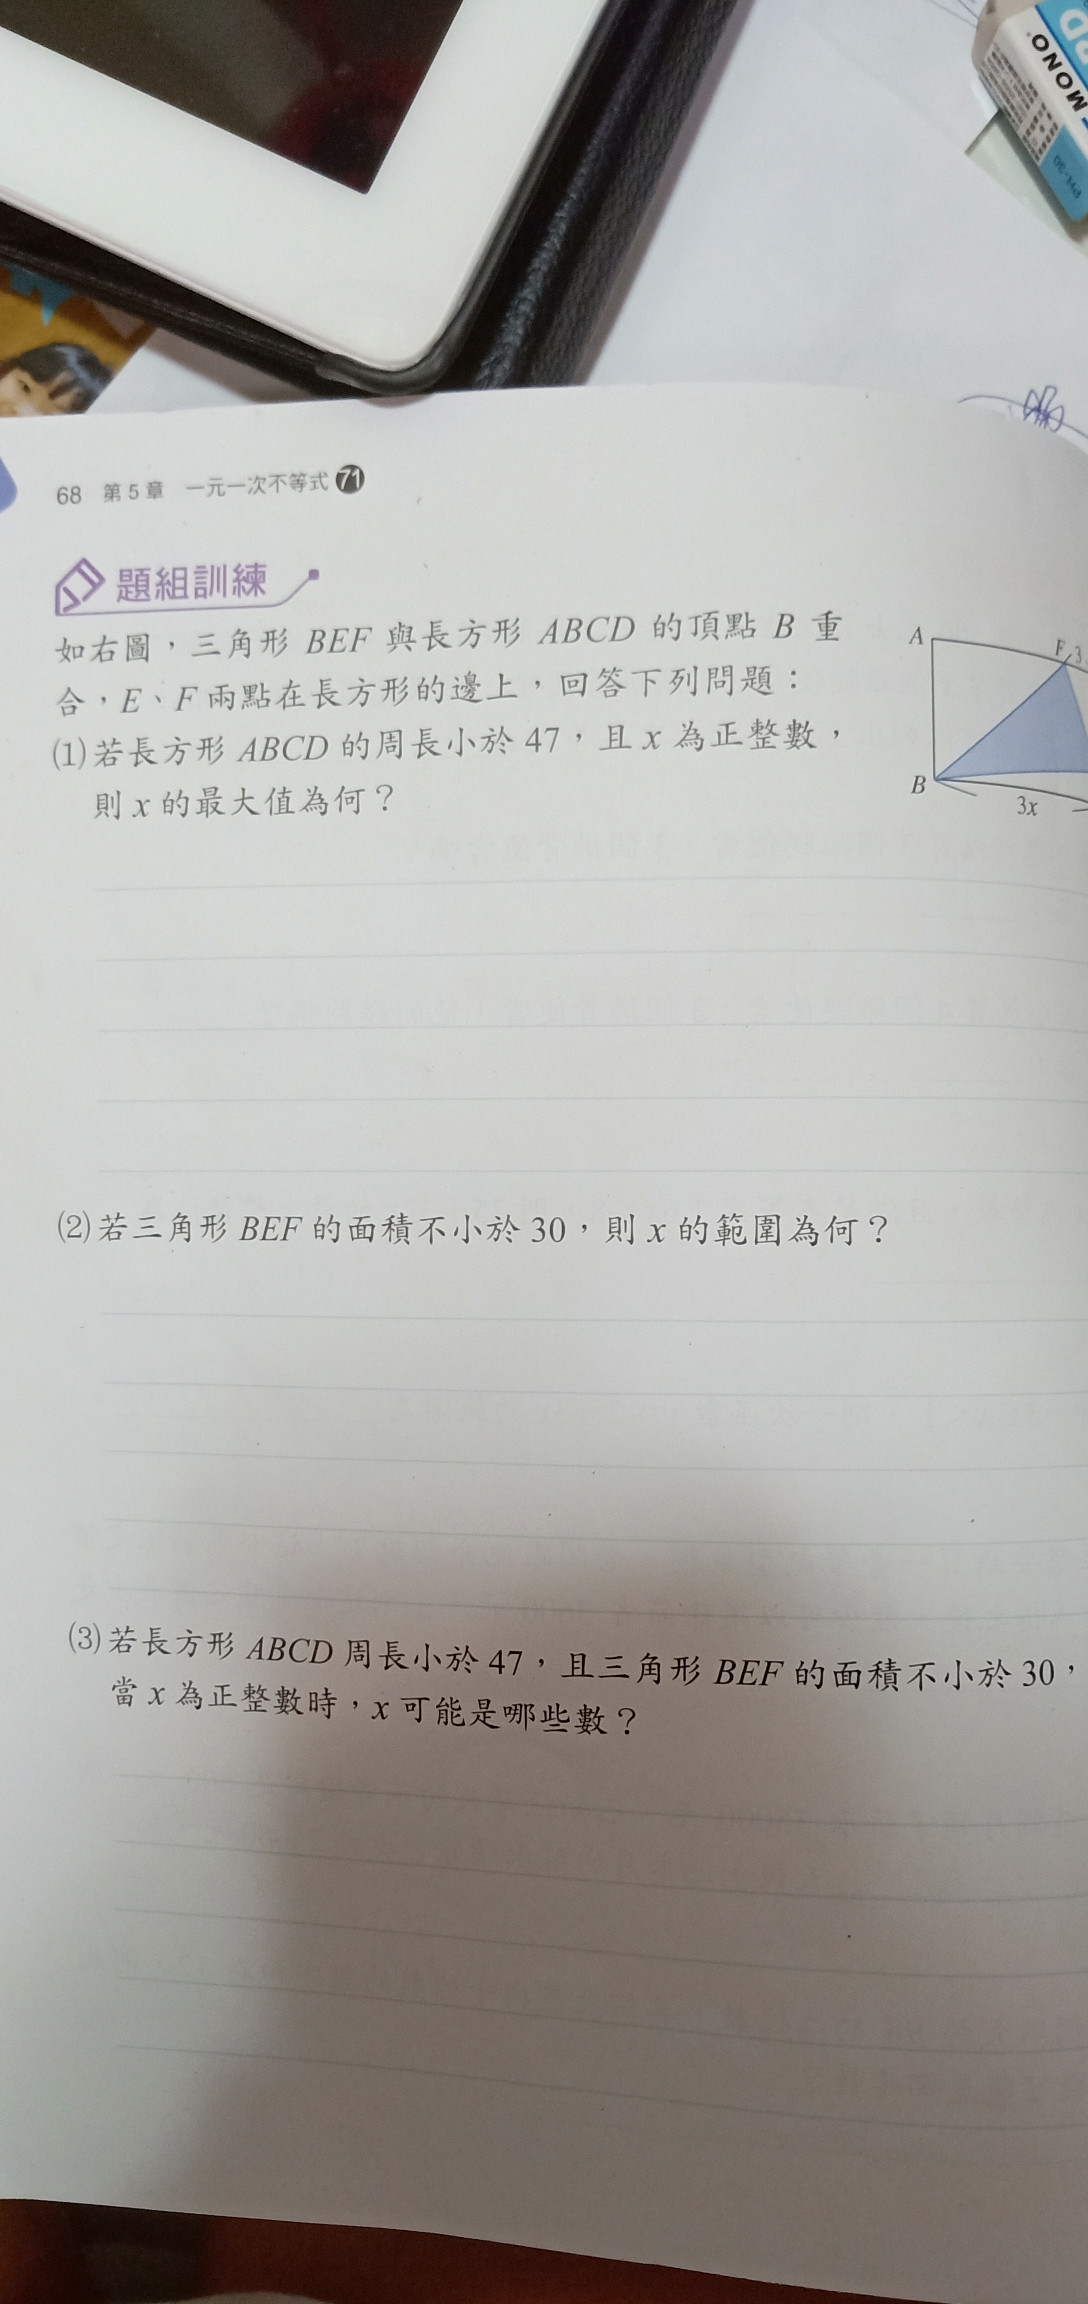 MONO
PH-30
68 第5章 一元一次不等式 71
題組訓練
如右圖，三角形 BEF 與長方形 ABCD 的頂點 B 重
合，E、F 兩點在長方形的邊上，回答下列問題：
⑴若長方形 ABCD 的周長小於 47，且 x 為正整數，
則 x 的最大值為何？
A
F 3
B
3x
⑵若三角形 BEF 的面積不小於 30，則 x 的範圍為何？
⑶若長方形 ABCD 周長小於 47，且三角形 BEF 的面積不小於 30，
當 x 為正整數時，x 可能是哪些數？